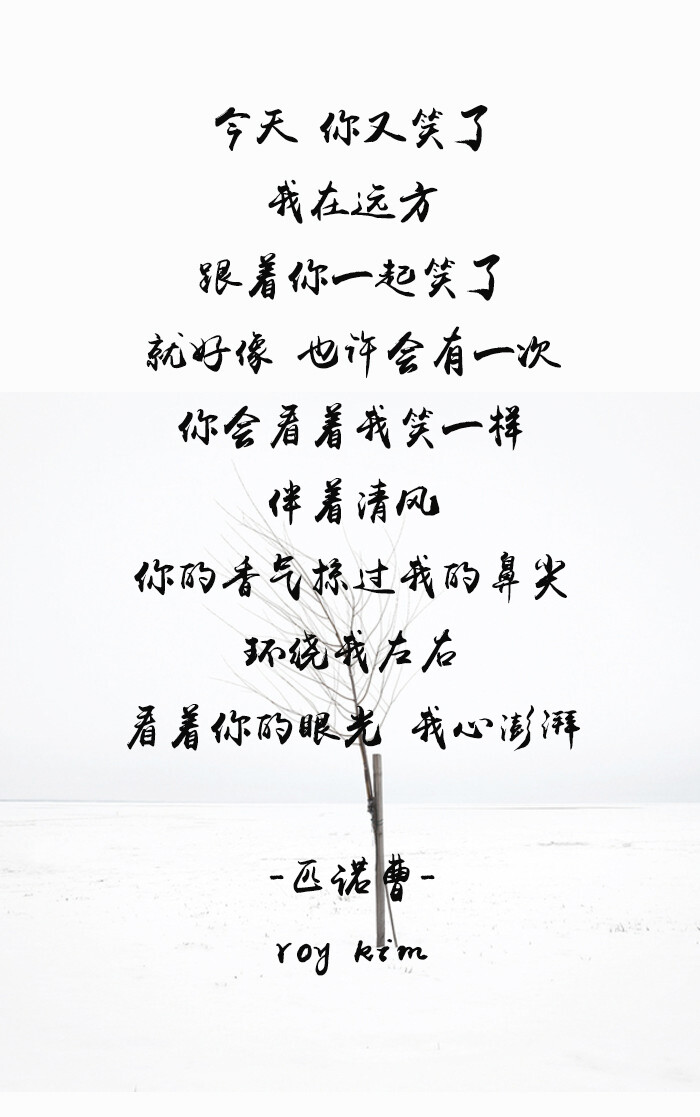 今天 你又笑了
我在远方
跟着你一起笑了
就好像 也许会有一次
你会看着我笑一样
伴着清风
你的香气掠过我的鼻尖
环绕我左右
看着你的眼光 我心澎湃
-匹诺曹-
roy kim